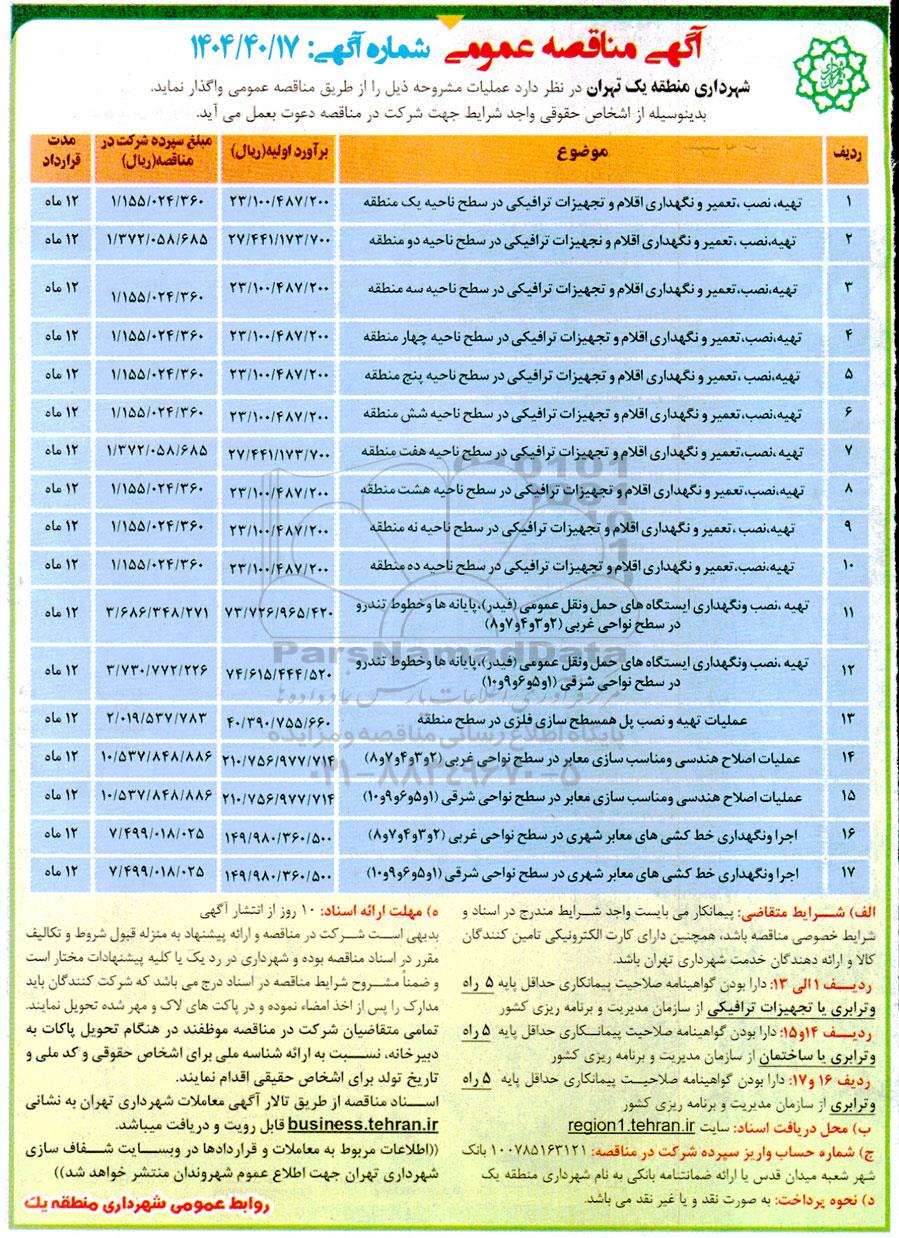 آگهی مناقصه عمومی شماره آگهی: ۱۴۰۴/۴۰/۱۷
شهرداری منطقه یک تهران در نظر دارد عملیات مشروحه ذیل را از طریق مناقصه عمومی واگذار نماید.
بدینوسیله از اشخاص حقوقی واجد شرایط جهت شرکت در مناقصه دعوت بعمل می آید.
ردیف موضوع برآورد اولیه(ریال) مبلغ سپرده شرکت در مناقصه(ریال) مدت قرارداد
۱ تهیه، نصب ،تعمیر و نگهداری اقلام و تجهیزات ترافیکی در سطح ناحیه یک منطقه ۲۳/۱۰۰/۴۸۷/۲۰۰ ۱/۱۵۵/۰۲۴/۳۶۰ ۱۲ ماه
۲ تهیه،نصب ،تعمیر و نگهداری اقلام و تجهیزات ترافیکی در سطح ناحیه دو منطقه ۲۷/۴۴۱/۱۷۳/۷۰۰ ۱/۳۷۲/۰۵۸/۶۸۵ ۱۲ ماه
۳ تهیه،نصب،تعمیر و نگهداری اقلام و تجهیزات ترافیکی در سطح ناحیه سه منطقه ۲۳/۱۰۰/۴۸۷/۲۰۰ ۱/۱۵۵/۰۲۴/۳۶۰ ۱۲ ماه
۴ تهیه،نصب،تعمیر و نگهداری اقلام و تجهیزات ترافیکی در سطح ناحیه چهار منطقه ۲۳/۱۰۰/۴۸۷/۲۰۰ ۱/۱۵۵/۰۲۴/۳۶۰ ۱۲ ماه
۵ تهیه،نصب ،تعمیر و نگهداری اقلام و تجهیزات ترافیکی در سطح ناحیه پنج منطقه ۲۳/۱۰۰/۴۸۷/۲۰۰ ۱/۱۵۵/۰۲۴/۳۶۰ ۱۲ ماه
۶ تهیه،نصب،تعمیر و نگهداری اقلام و تجهیزات ترافیکی در سطح ناحیه شش منطقه ۲۳/۱۰۰/۴۸۷/۲۰۰ ۱/۱۵۵/۰۲۴/۳۶۰ ۱۲ ماه
۷ تهیه ،نصب،تعمیر و نگهداری اقلام و تجهیزات ترافیکی در سطح ناحیه هفت منطقه ۲۷/۴۴۱/۱۷۳/۷۰۰ ۱/۳۷۲/۰۵۸/۶۸۵ ۱۲ ماه
۸ تهیه،نصب،تعمیر و نگهداری اقلام و تجهیزات ترافیکی در سطح ناحیه هشت منطقه ۲۳/۱۰۰/۴۸۷/۲۰۰ ۱/۱۵۵/۰۲۴/۳۶۰ ۱۲ ماه
۹ تهیه،نصب ،تعمیر و نگهداری اقلام و تجهیزات ترافیکی در سطح ناحیه نه منطقه ۲۳/۱۰۰/۴۸۷/۲۰۰ ۱/۱۵۵/۰۲۴/۳۶۰ ۱۲ ماه
۱۰ تهیه،نصب،تعمیر و نگهداری اقلام و تجهیزات ترافیکی در سطح ناحیه ده منطقه ۲۳/۱۰۰/۴۸۷/۲۰۰ ۱/۱۵۵/۰۲۴/۳۶۰ ۱۲ ماه
۱۱ تهیه ،نصب ونگهداری ایستگاه های حمل ونقل عمومی (فیدر)،پایانه ها وخطوط تندرو ۷۳/۷۲۶/۹۶۵/۴۲۰ ۳/۶۸۶/۳۴۸/۲۷۱ ۱۲ ماه
در سطح نواحی غربی (۲و۳و۴و۷و۸)
۱۲ تهیه ،نصب ونگهداری ایستگاه های حمل ونقل عمومی (فیدر)،پایانه ها وخطوط تندرو ۷۴/۶۱۵/۴۴۴/۵۲۰ ۳/۷۳۰/۷۷۲/۲۲۶ ۱۲ ماه
در سطح نواحی شرقی (۱و۵و۶و۹و۱۰)
۱۳ عملیات تهیه و نصب پل همسطح سازی فلزی در سطح منطقه ۴۰/۳۹۰/۷۵۵/۶۶۰ ۲/۰۱۹/۵۳۷/۷۸۳ ۱۲ ماه
۱۴ عملیات اصلاح هندسی ومناسب سازی معابر در سطح نواحی غربی (۲و۳و۴و۷و۸) ۲۱۰/۷۵۶/۹۷۷/۷۱۴ ۱۰/۵۳۷/۸۴۸/۸۸۶ ۱۲ ماه
۱۵ عملیات اصلاح هندسی ومناسب سازی معابر در سطح نواحی شرقی (۱و۵و۶و۹و۱۰) ۲۱۰/۷۵۶/۹۷۷/۷۱۴ ۱۰/۵۳۷/۸۴۸/۸۸۶ ۱۲ ماه
۱۶ اجرا ونگهداری خط کشی های معابر شهری در سطح نواحی غربی (۲و۳و۴و۷و۸) ۱۴۹/۹۸۰/۳۶۰/۵۰۰ ۷/۴۹۹/۰۱۸/۰۲۵ ۱۲ ماه
۱۷ اجرا ونگهداری خط کشی های معابر شهری در سطح نواحی شرقی (۱و۵و۶و۹و۱۰) ۱۴۹/۹۸۰/۳۶۰/۵۰۰ ۷/۴۹۹/۰۱۸/۰۲۵ ۱۲ ماه
ParsNamadData
پایگاه اطلاع رسانی مناقصه و مزایده
۰۲۱-۸۸۳۴۹۶۷۰-۵
الف) شرایط متقاضی: پیمانکار می بایست واجد شرایط مندرج در اسناد و
شرایط خصوصی مناقصه باشد، همچنین دارای کارت الکترونیکی تامین کنندگان
کالا و ارائه دهندگان خدمت شهرداری تهران باشد.
ردیف ۱ الی ۱۳: دارا بودن گواهینامه صلاحیت پیمانکاری حداقل پایه ۵ راه
وترابری یا تجهیزات ترافیکی از سازمان مدیریت و برنامه ریزی کشور
ردیف ۱۴و۱۵: دارا بودن گواهینامه صلاحیت پیمانکاری حداقل پایه ۵ راه
وترابری یا ساختمان از سازمان مدیریت و برنامه ریزی کشور
ردیف ۱۶ و۱۷: دارا بودن گواهینامه صلاحیت پیمانکاری حداقل پایه ۵ راه
وترابری از سازمان مدیریت و برنامه ریزی کشور
ب) محل دریافت اسناد: سایت region1.tehran.ir
ج) شماره حساب واریز سپرده شرکت در مناقصه: ۱۰۰۷۸۵۱۶۳۱۲۱ بانک
شهر شعبه میدان قدس یا ارائه ضمانتنامه بانکی به نام شهرداری منطقه یک
د) نحوه پرداخت: به صورت نقد و یا غیر نقد می باشد.
ه) مهلت ارائه اسناد: ۱۰ روز از انتشار آگهی
بدیهی است شرکت در مناقصه و ارائه پیشنهاد به منزله قبول شروط و تکالیف
مقرر در اسناد مناقصه بوده و شهرداری در رد یک یا کلیه پیشنهادات مختار است
و ضمناً مشروح شرایط مناقصه در اسناد درج می باشد که شرکت کنندگان باید
مدارک را پس از اخذ امضاء نموده و در پاکت های لاک و مهر شده تحویل نمایند.
تمامی متقاضیان شرکت در مناقصه موظفند در هنگام تحویل پاکات به
دبیرخانه، نسبت به ارائه شناسه ملی برای اشخاص حقوقی و کد ملی و
تاریخ تولد برای اشخاص حقیقی اقدام نمایند.
اسناد مناقصه از طریق تالار آگهی معاملات شهرداری تهران به نشانی
business.tehran.ir قابل رویت و دریافت میباشد.
((اطلاعات مربوط به معاملات و قراردادها در وبسایت شفاف سازی
شهرداری تهران جهت اطلاع عموم شهروندان منتشر خواهد شد))
روابط عمومی شهرداری منطقه یک